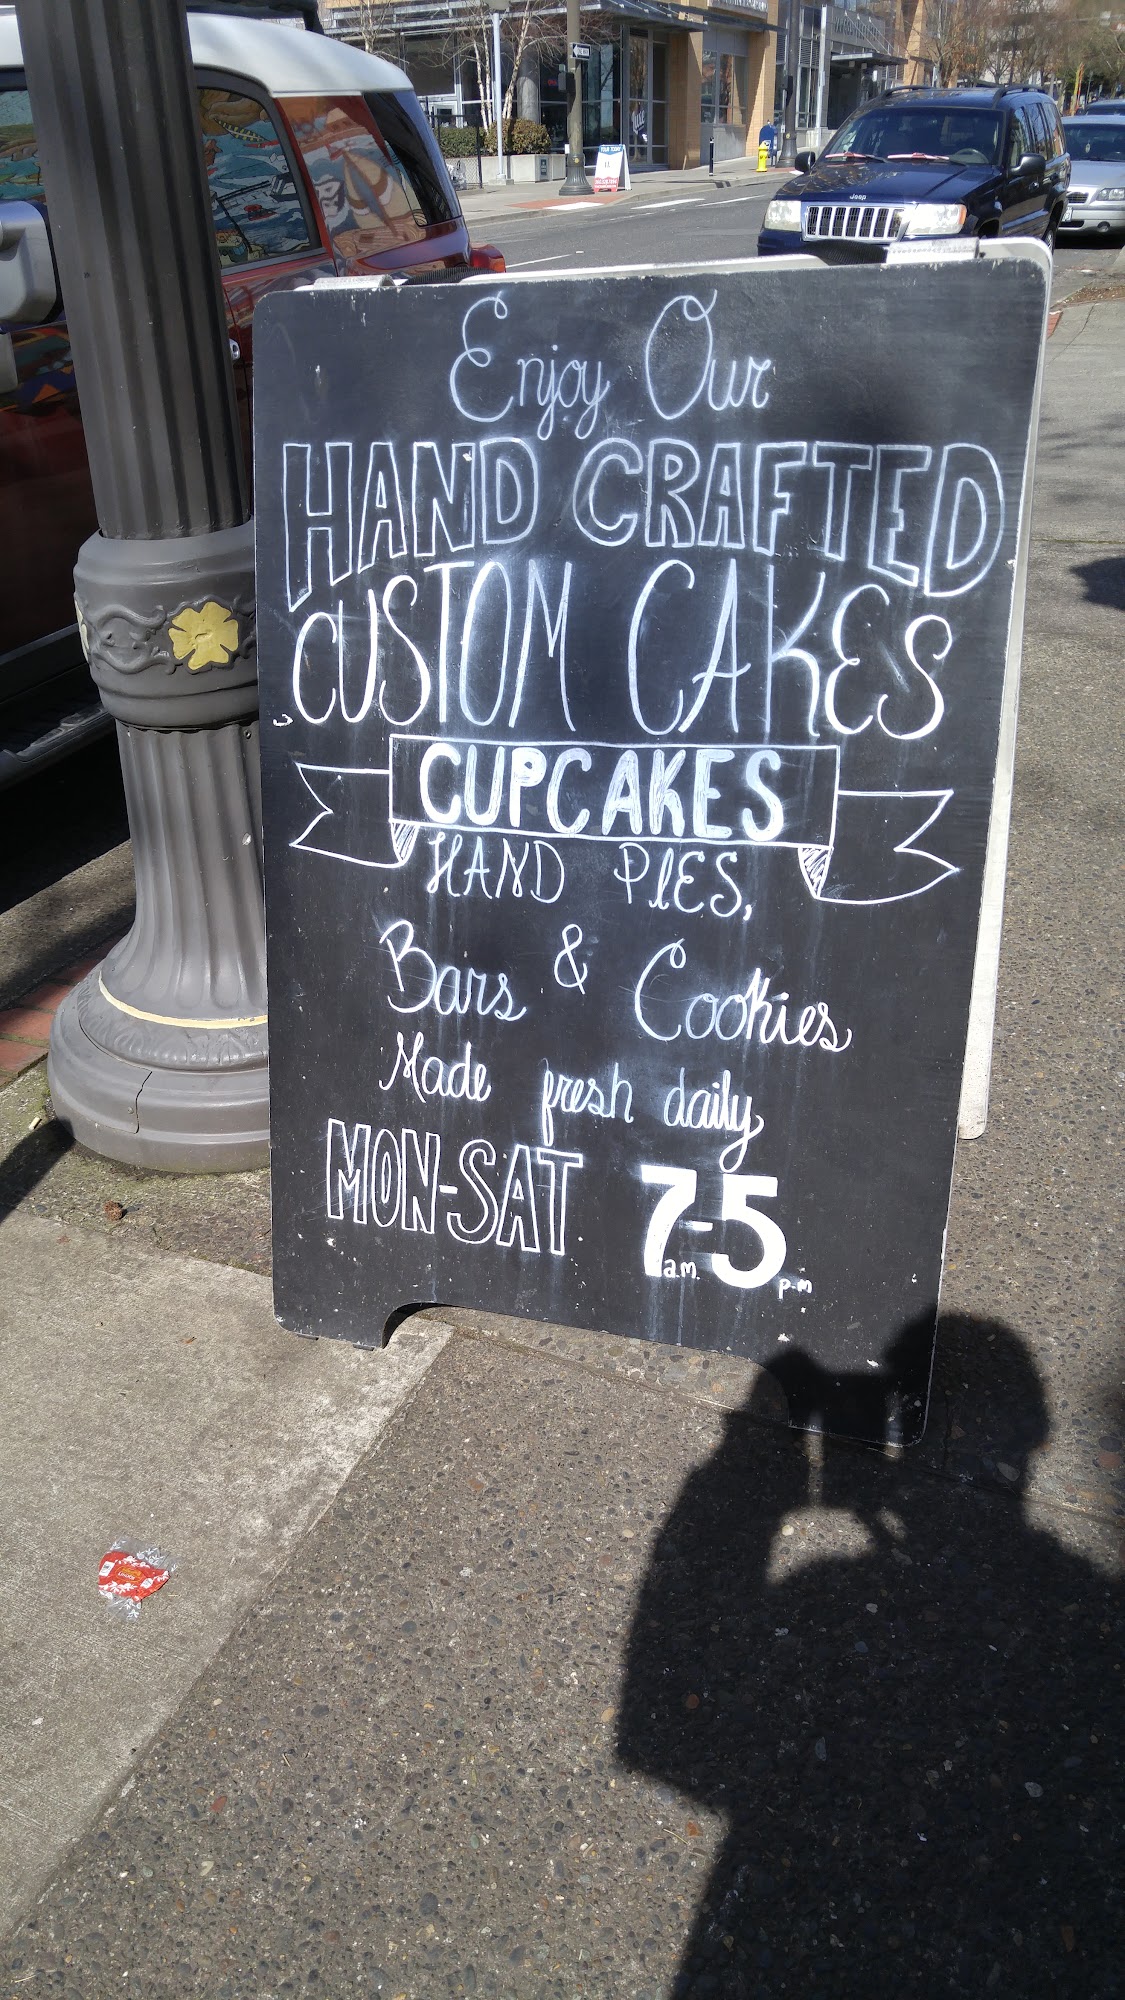 Enjoy Our
HAND CRAFTED
CUSTOM CAKES
CUPCAKES
HAND PIES,
Bars & Cookies
Made fresh daily
MON-SAT 7a.m.-5p-m
Jeep